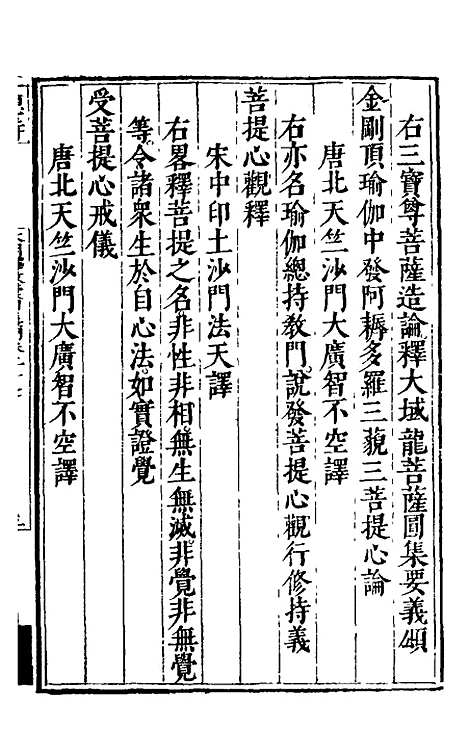 右三寶尊菩薩造論釋大域龍菩薩圓集要義頌
金剛頂瑜伽中發阿耨多羅三藐三菩提心論
唐北天竺沙門大廣智不空譯
右亦名瑜伽總持教門。說發菩提心觀行修持義
菩提心觀釋
宋中印土沙門法天譯
右畧釋菩提之名。非性非相。無生無滅。非覺非無覺
等。令諸衆生於自心法。如實證覺
受菩提心戒儀
唐北天竺沙門大廣智不空譯